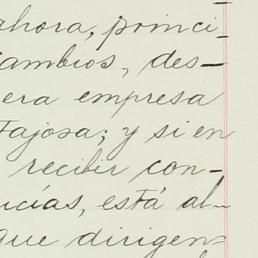 ahora, princi
cambios, des-
era empresa
tajosa; y si en
recibir con-
ncias, está al-
que dirigen-